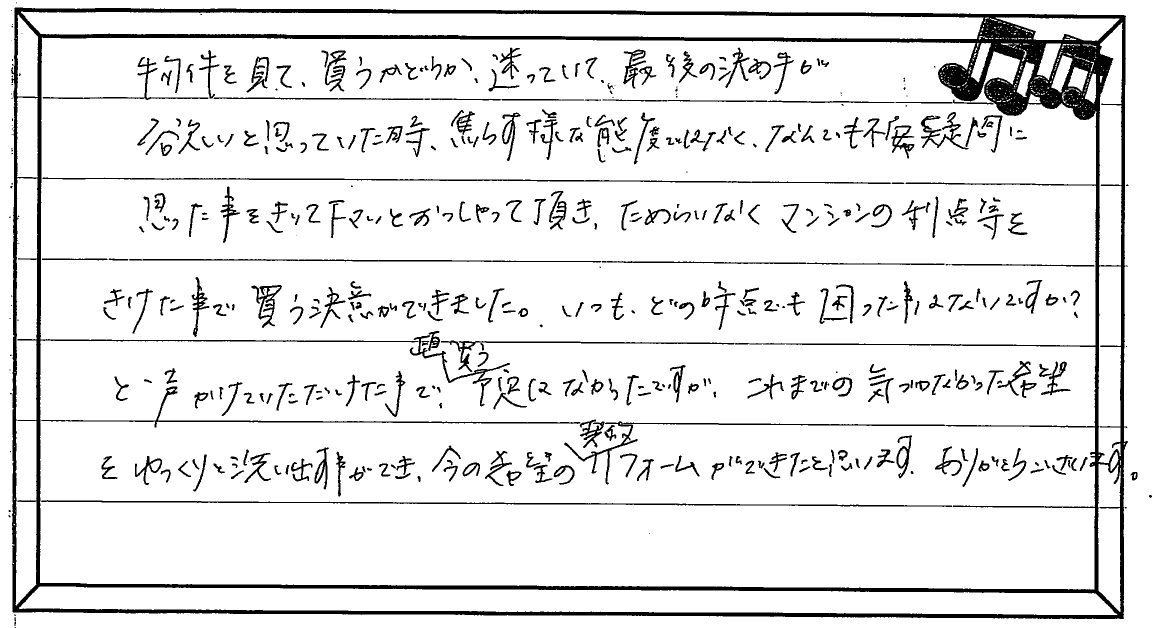 物件を見て、買うかどうか、迷っていて、最後の決め手が
欲しいと思っていた時、焦らす様な態度ではなく、なんでも不安疑問に
思った事をきいて下さいとおっしゃって頂き、ためらいなくマンションの利点等を
きけた事で買う決意ができました。いつも、どの時点でも困った事はないですか?
と一声かけていただけた事で、直買う予定はなかったですが、これまでの気づかなかった希望
をゆっくりと洗い出す事ができ、今の希望の契約リフォームができたと思います。ありがとうございます。